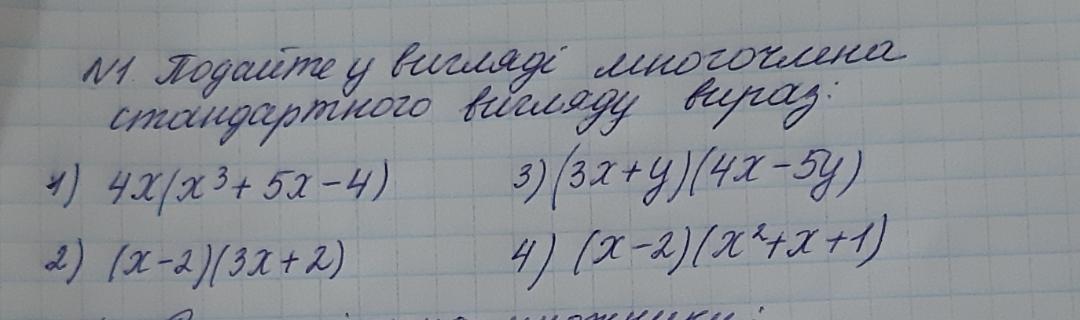 №1. Подайте у вигляді многочлена
стандартного вигляду вираз:
1) 4x(x³ + 5x - 4)
3) (3x + y)(4x - 5y)
2) (x - 2)(3x + 2)
4) (x - 2)(x² + x + 1)
множники: